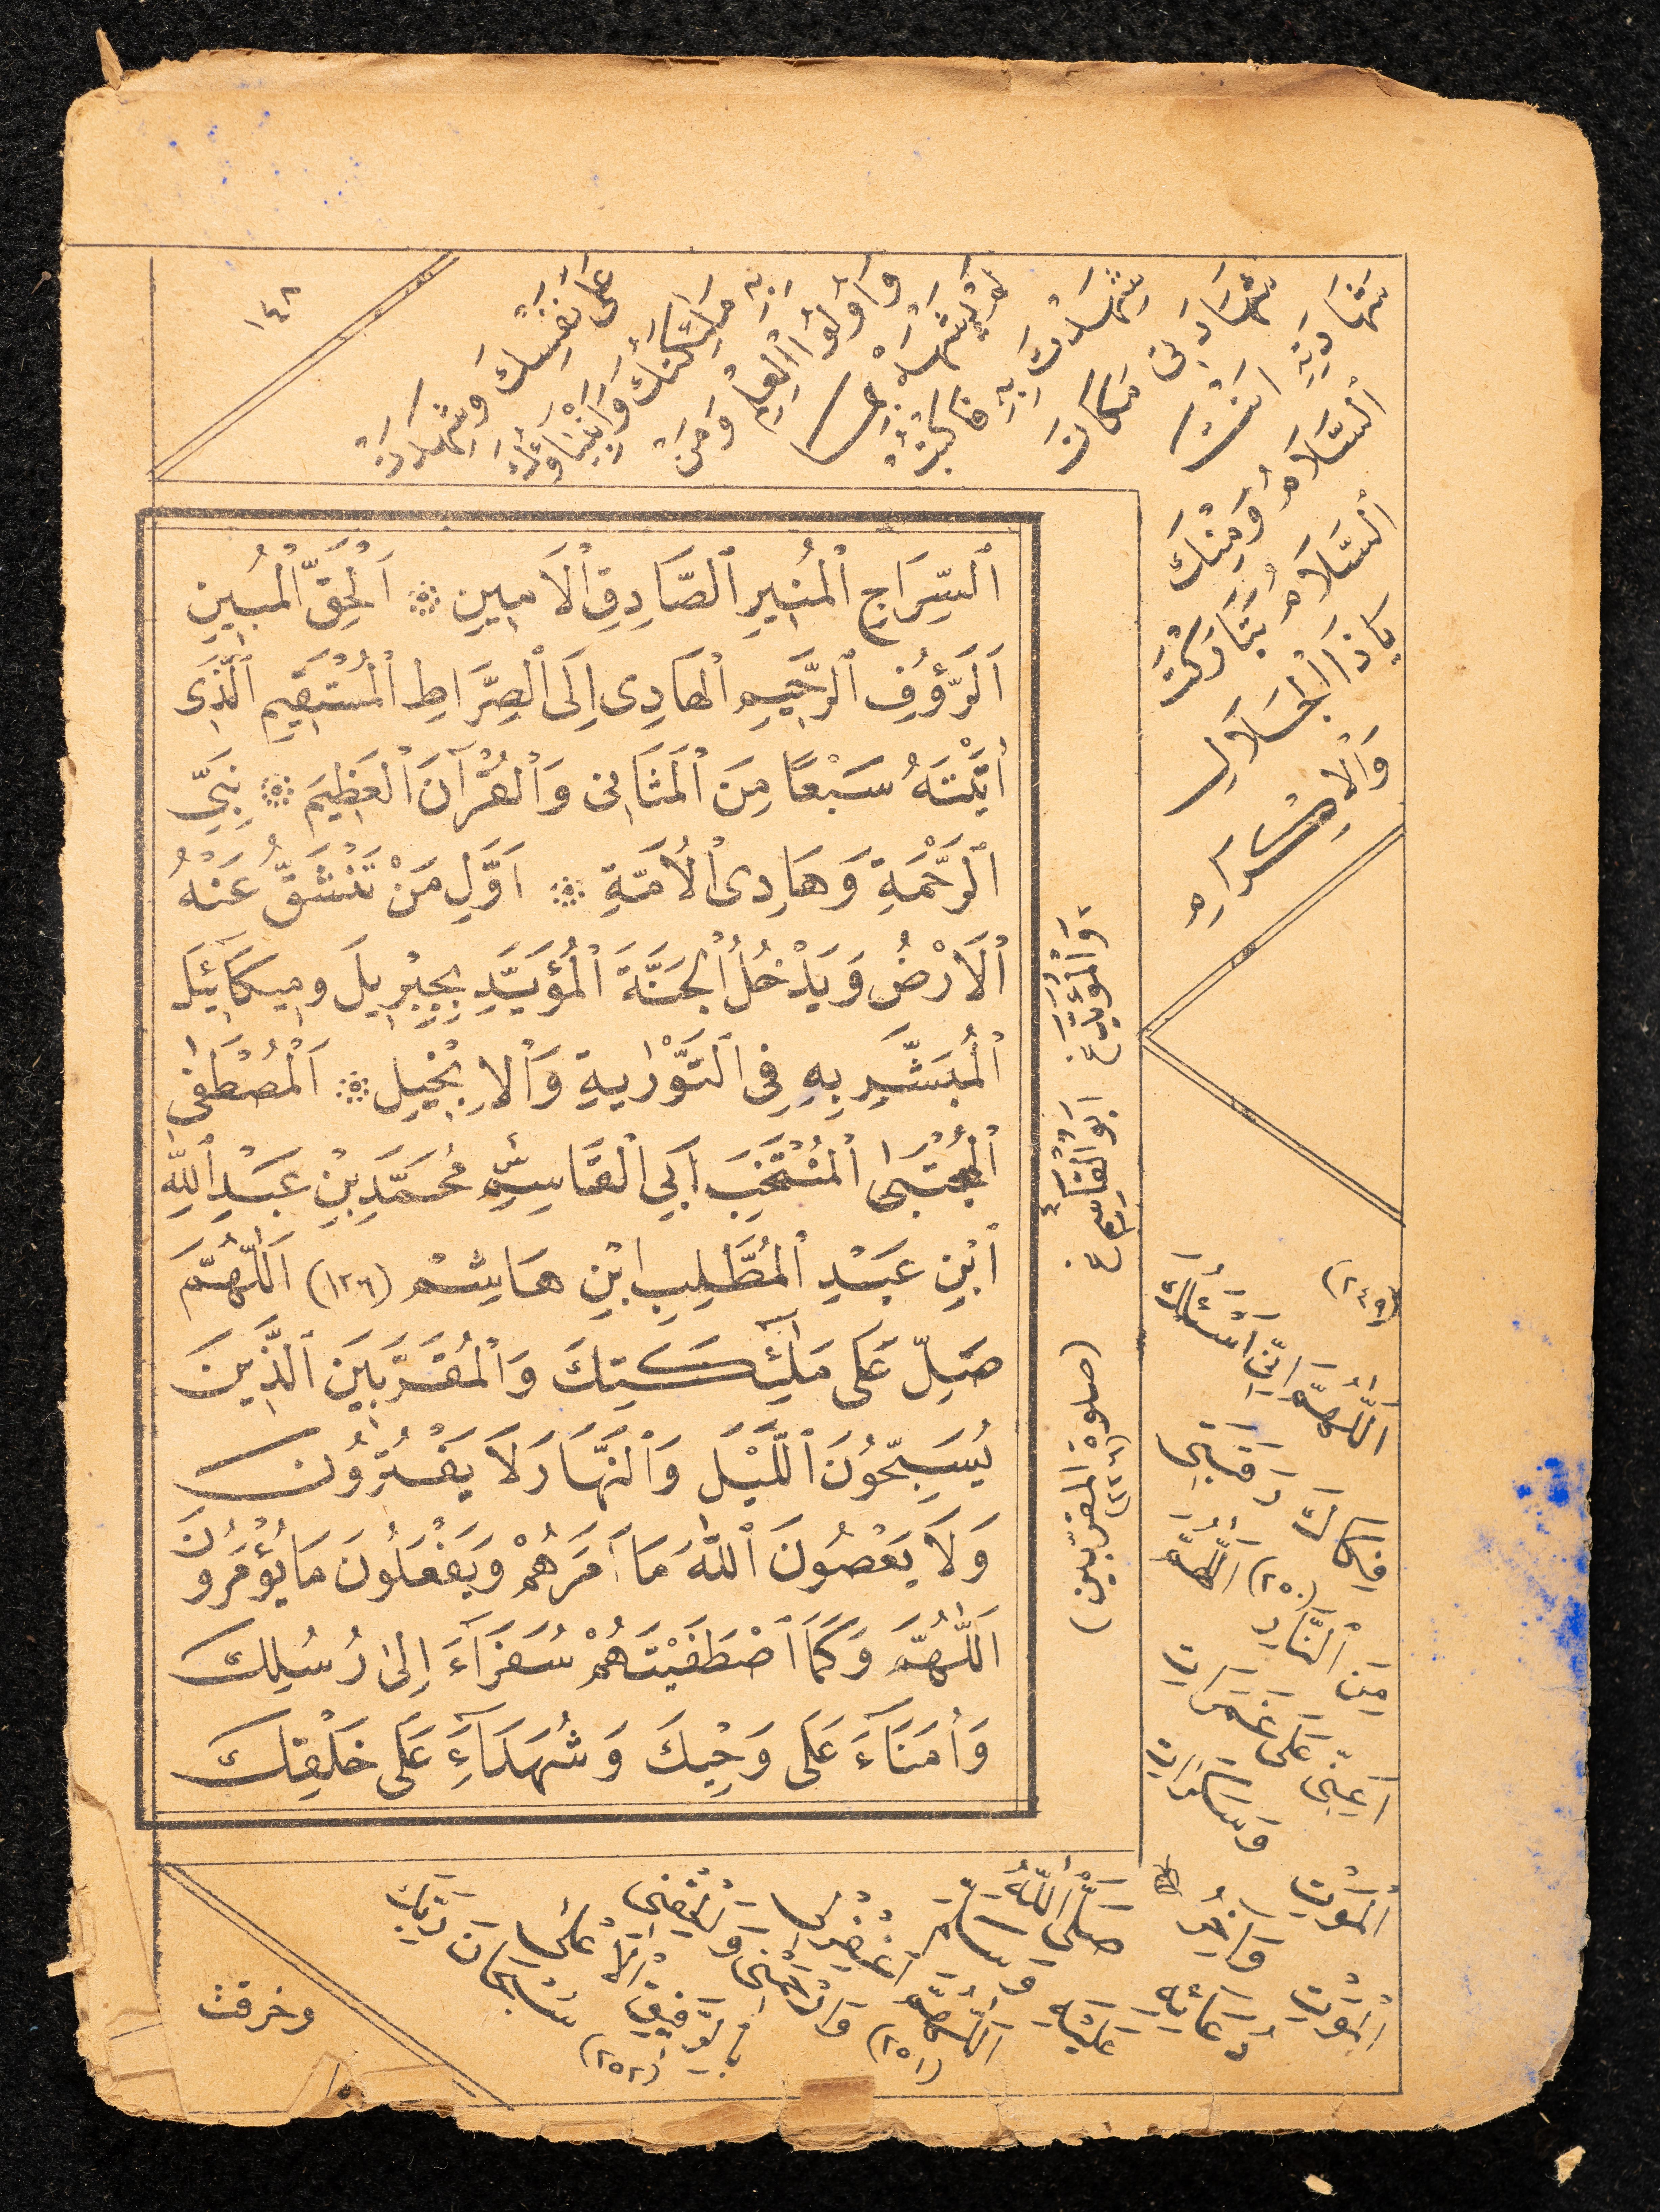 ١٤٨
عَلَى نَفْسِكَ وَشَهَادَةِ
مَلَائِكَتِكَ وَاَنْبِيَاؤُكَ
وَاُولُوا الْعِلْمِ وَمَنْ
لَمْ يَشْهَدْ بِمَا
شَهِدْتَ بِهِ فَاكْتُبْ
شَهَادَتِى مَكَانَ
شَهَادَتِهِ اَنْتَ
اَلسَّلَامُ وَمِنْكَ
اَلسَّلَامُ تَبَارَكْتَ
يَاذَا الْجَلَالِ
وَالْاِكْرَامِ
ٱلسِّرَاجِ ٱلْمُنِيرِ ٱلصَّادِقِ ٱلْاَمِينِ ۞ اَلْحَقِّ ٱلْمُبِينِ
اَلرَّؤُفِ ٱلرَّحِيمِ ٱلْهَادِى اِلَى ٱلصِّرَاطِ ٱلْمُسْتَقِيمِ ٱلَّذِى
اٰتَيْتَهُ سَبْعًا مِنَ ٱلْمَثَانِى وَٱلْقُرْآنَ ٱلْعَظِيمَ ۞ نَبِيِّ
ٱلرَّحْمَةِ وَهَادِى ٱلْاُمَّةِ ۞ اَوَّلِ مَنْ تَنْشَقُّ عَنْهُ
ٱلْاَرْضُ وَيَدْخُلُ ٱلْجَنَّةَ ٱلْمُؤَيَّدِ بِجِبْرِيلَ وَمِيكَائِيلَ
ٱلْمُبَشَّرِ بِهِ فِى ٱلتَّوْرٰيةِ وَٱلْاِنْجِيلِ ۞ اَلْمُصْطَفٰى
ٱلْمُجْتَبٰى ٱلْمُنْتَخَبِ اَبِي ٱلْقَاسِمِ مُحَمَّدِ بْنِ عَبْدِ ٱللّٰهِ
ٱبْنِ عَبْدِ ٱلْمُطَّلِبِ ابْنِ هَاشِمْ (١٢٦) اَللّٰهُمَّ
صَلِّ عَلَى مَلٰٓئِكَتِكَ وَٱلْمُقَرَّبِينَ ٱلَّذِينَ
يُسَبِّحُونَ ٱللَّيْلَ وَٱلنَّهَارَ لَا يَفْتُرُونَ
وَلَا يَعْصُونَ ٱللّٰهَ مَا اَمَرَهُمْ وَيَفْعَلُونَ مَا يُؤْمَرُونَ
اَللّٰهُمَّ وَكَمَا ٱصْطَفَيْتَهُمْ سُفَرَآءَ اِلٰى رُسُلِكَ
وَاُمَنَآءَ عَلَى وَحْيِكَ وَشُهَدَآءَ عَلَى خَلْقِكَ
وَالْمُؤَيَّدِ خ
اَبُو الْقَاسِمِ خ
(صلوة المقرّبين)
(٢٤٩)
اَللّٰهُمَّ اِنِّى اَسْئَلُكَ
فِكَاكَ رَقَبَتِى
مِنَ النَّارِ (٢٥٠) اَللّٰهُمَّ
اَعِنِّى عَلَى غَمَرَاتِ
الْمَوْتِ
وَسَكَرَاتِ
الْمَوْتِ
وَآخِرُ
دُعَائِهِ
صَلَّى اللّٰهُ
عَلَيْهِ
وَسَلَّمَ
(٢٥١) اَللّٰهُمَّ
اغْفِرْلِى
وَارْحَمْنِى وَاَلْحِقْنِى
بِالرَّفِيقِ الْاَعْلَى
(٢٥٢) سُبْحَانَ رَبِّكَ
وخرقت